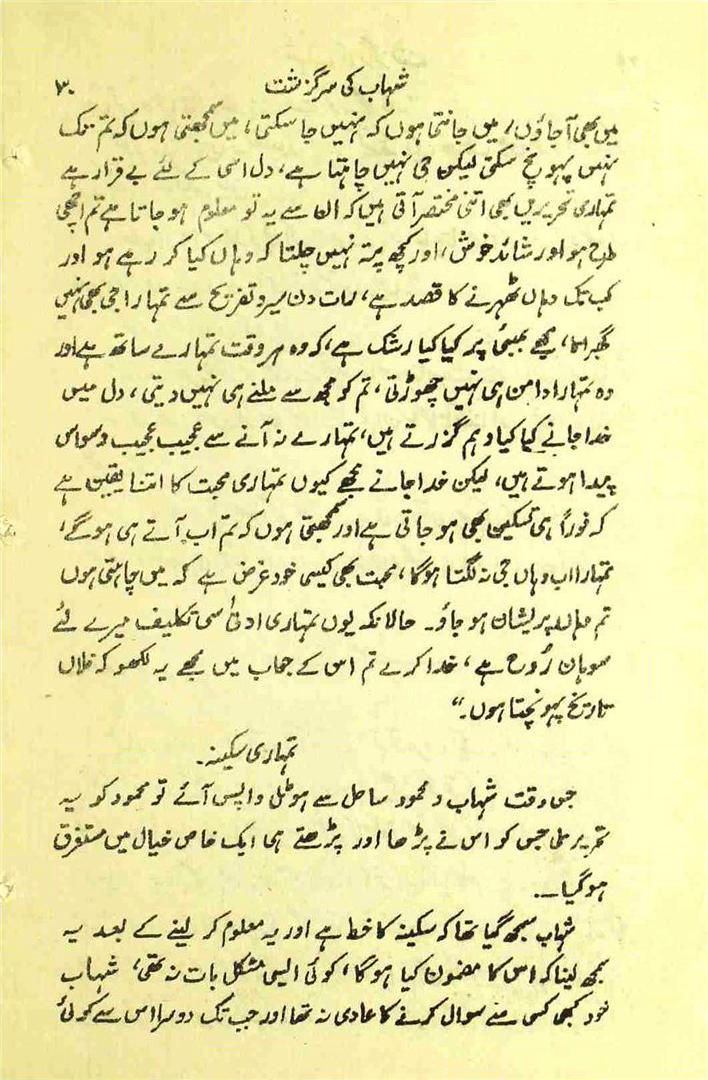 شہاب کی سرگزشت ۳۰
میں بھی آجاؤں، میں جانتی ہوں کہ نہیں جا سکتی، میں سمجھتی ہوں کہ تم تک
نہیں پہونچ سکتی لیکن جی نہیں چاہتا ہے، دل اسی کے لئے بے قرار ہے
تمہاری تحریریں بھی اتنی مختصر آتی ہیں کہ ان سے یہ تو معلوم ہو جاتا ہے تم اچھی
طرح ہو اور شائد خوش، اور کچھ پتہ نہیں چلتا کہ وہاں کیا کر رہے ہو اور
کب تک وہاں ٹھہرنے کا قصد ہے، رات دن سیر و تفریح سے تمہارا جی بھی نہیں
گھبراتا، مجھے بمبئی پر کیا کیا رشک ہے، کہ وہ ہر وقت تمہارے ساتھ ہے اور
وہ تمہارا دامن ہی نہیں چھوڑتی، تم کو مجھ سے ملنے ہی نہیں دیتی، دل میں
خدا جانے کیا کیا وہم گزرتے ہیں، تمہارے نہ آنے سے عجیب عجیب وسواس
پیدا ہوتے ہیں، لیکن خدا جانے مجھے کیوں تمہاری محبت کا اتنا یقین ہے
کہ فوراً ہی تسکین بھی ہو جاتی ہے اور سمجھتی ہوں کہ تم اب آتے ہی ہوگے،
تمہارا اب وہاں جی نہ لگتا ہوگا، محبت بھی کیسی خود غرض ہے کہ میں چاہتی ہوں
تم وہاں پریشان ہو جاؤ۔ حالانکہ یوں تمہاری ادنیٰ سی تکلیف میرے لئے
سوہان رُوح ہے، خدا کرے تم اس کے جواب میں مجھے یہ لکھو کہ فلاں
تاریخ پہونچتا ہوں۔"
تمہاری سکینہ۔
جس وقت شہاب و محمود ساحل سے ہوٹل واپس آئے تو محمود کو یہ
تحریر ملی جس کو اس نے پڑھا اور پڑھتے ہی ایک خاص خیال میں مستغرق
ہوگیا۔۔
شہاب سمجھ گیا تھا کہ سکینہ کا خط ہے اور یہ معلوم کر لینے کے بعد یہ
سمجھ لینا کہ اس کا مضمون کیا ہوگا، کوئی ایسی مشکل بات نہ تھی، شہاب
خود کبھی کسی سے سوال کرنے کا عادی نہ تھا اور جب تک دوسرا اس سے کوئی